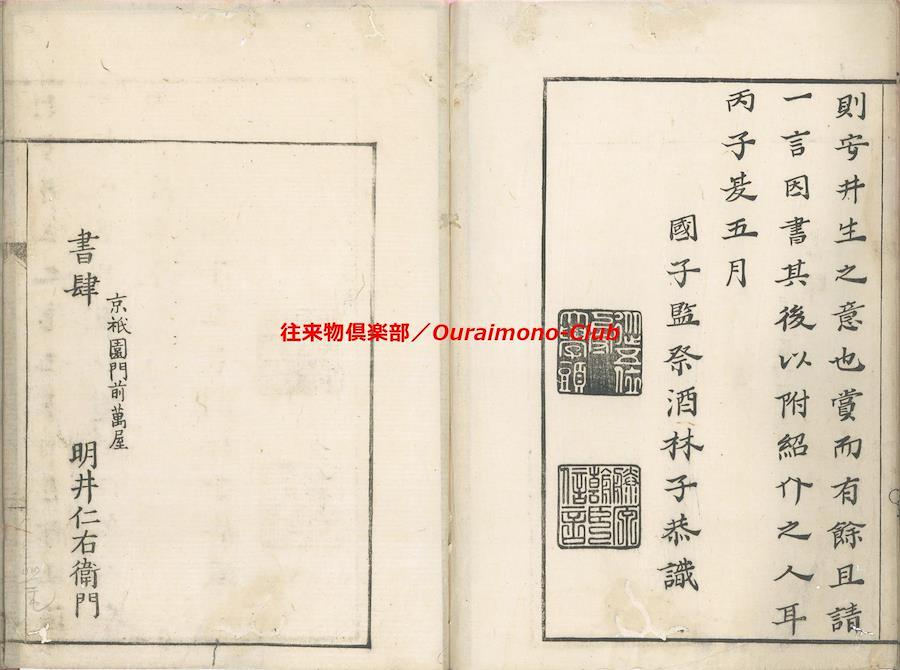 則安井生之意也賞而有餘且請
一言因書其後以附紹介之人耳
丙子夏五月
國子監祭酒林子恭識
書肆
京祇園門前萬屋
明井仁右衛門
往来物倶楽部／Ouraimono-Club